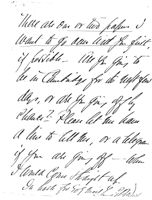 There are one or two papers I
want to go over with you first,
if possible. Are you going to
be in Cambridge for the next few
days, or are you going off by
chance? Please let me have
a line to tell me, or a telegram
if you are going off – when
I would come straight up.